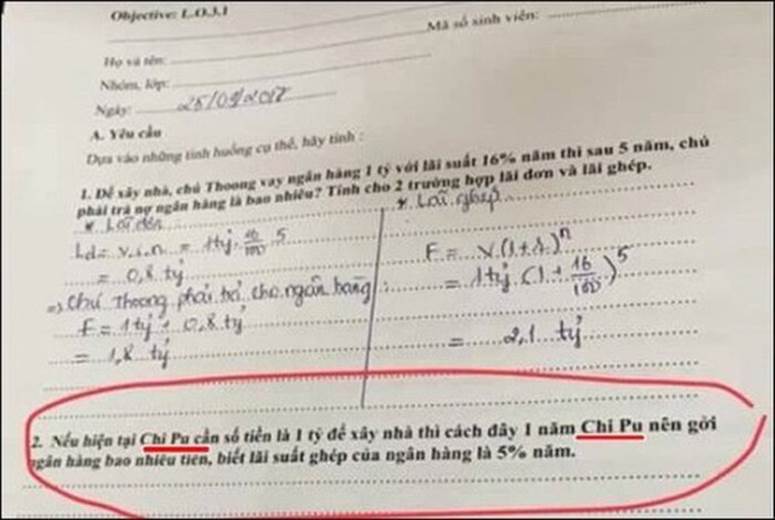 Objective: L.O.3.1
Mã số sinh viên:
Họ và tên:
Nhóm, lớp:
Ngày: 25/09/2017
A. Yêu cầu
Dựa vào những tình huống cụ thể, hãy tính :
1. Để xây nhà, chú Thoong vay ngân hàng 1 tỷ với lãi suất 16% năm thì sau 5 năm, chú
phải trả nợ ngân hàng là bao nhiêu? Tính cho 2 trường hợp lãi đơn và lãi ghép.
* Lãi đơn
Lđ = V.i.n = 1tỷ. 16/100 .5
= 0,8 tỷ
=> Chú Thoong phải trả cho ngân hàng :
F = 1tỷ + 0,8 tỷ
= 1,8 tỷ
* Lãi ghép
F = V(1+i)^n
= 1tỷ. (1 + 16/100)^5
= 2,1 tỷ
2. Nếu hiện tại Chi Pu cần số tiền là 1 tỷ để xây nhà thì cách đây 1 năm Chi Pu nên gởi
ngân hàng bao nhiêu tiền, biết lãi suất ghép của ngân hàng là 5% năm.